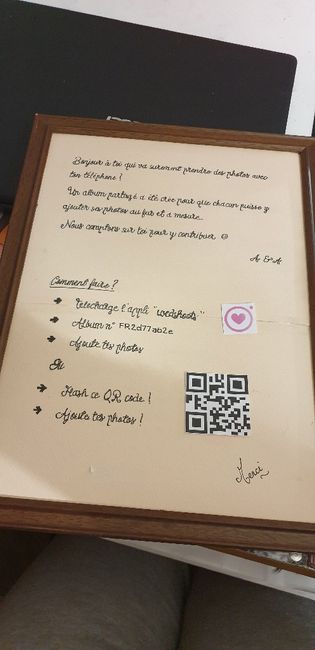 Bonjour à toi qui va surement prendre des photos avec
ton téléphone !
Un album partagé a été crée pour que chacun puisse y
ajouter ses photos au fur et à mesure...
Nous comptons sur toi pour y contribuer ☺
A & A
Comment faire ?
→ Télécharge l'appli "wedshoots"
→ Album n° FR2d77ab2e
→ Ajoute tes photos
Ou
→ Flash ce QR code !
→ Ajoute tes photos !
Merci